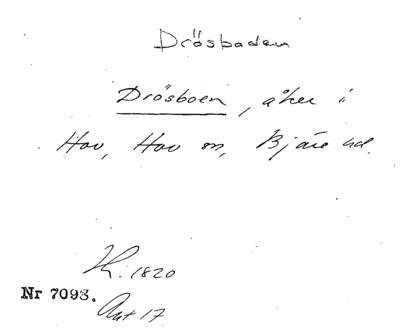 Drösbaden
Drösboen, åker i
Hov, Hov sn, Bjäre hd.
Lh. 1820
Nr 7093.
Akt 17